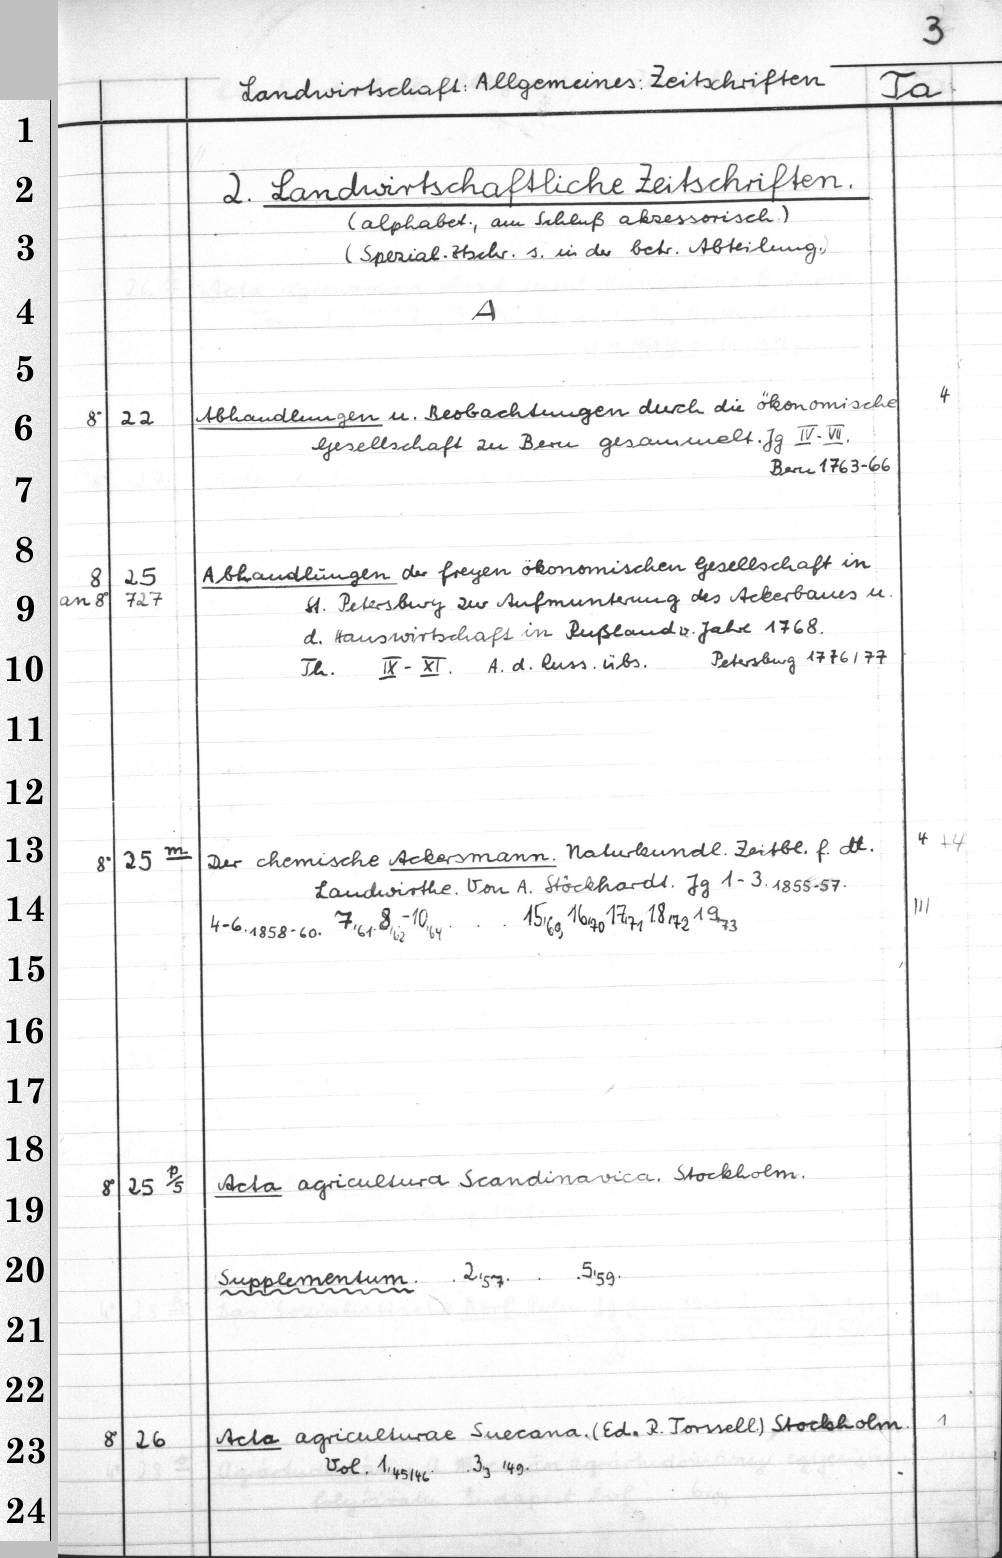 3
Landwirtschaft: Allgemeines: Zeitschriften Ta
1
2
3
4
5
6
7
8
9
10
11
12
13
14
15
16
17
18
19
20
21
22
23
24
2. Landwirtschaftliche Zeitschriften.
(alphabet., am Schluß akzessorisch)
(Spezial-Ztschr. s. in der betr. Abteilung.)
A
8° 22 Abhandlungen u. Beobachtungen durch die ökonomische 4
Gesellschaft zu Bern gesammelt. Jg IV-VII.
Bern 1763-66
8 25 Abhandlungen der freyen ökonomischen Gesellschaft in
an 8° 727 St. Petersburg zur Aufmunterung des Ackerbaues u.
d. Hauswirtschaft in Rußland v. Jahre 1768.
Th. IX-XI. A. d. Russ. übs. Petersburg 1776/77
8° 25 m Der chemische Ackersmann. Naturkundl. Zeitbl. f. dt. 4 +4
Landwirthe. Von A. Stöckhardt. Jg 1-3. 1855-57.
4-6. 1858-60. 7,'61. 8,'62-10,'64 . . . 15,'69, 16,'70 17,'71 18,'72 19,'73 III
8° 25 p/5 Acta agricultura Scandinavica. Stockholm.
Supplementum. . 2,'57. . . 5,'59.
8° 26 Acta agriculturae Suecana. (Ed. R. Torssell) Stockholm. 1
Vol. 1,'45/46. . 3,3 '49.